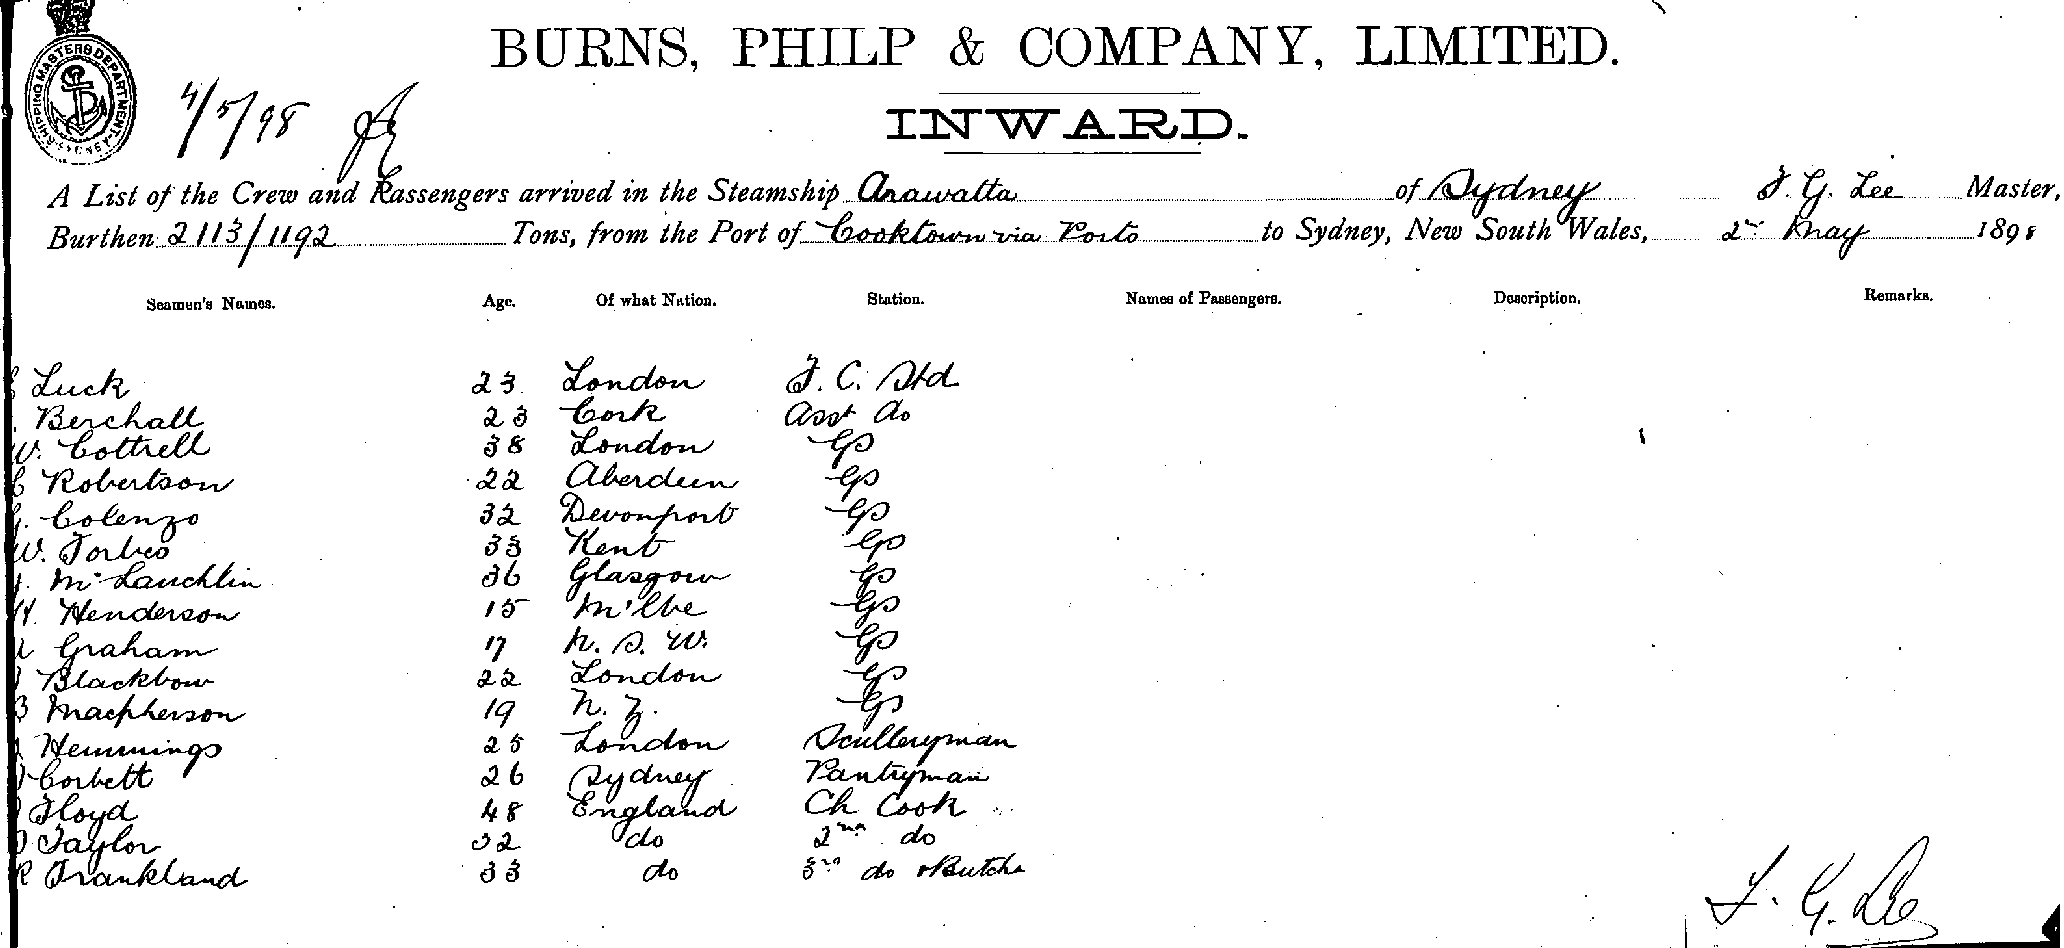 SHIPPING MASTERS DEPARTMENT SYDNEY
4/5/98
BURNS, PHILP & COMPANY, LIMITED.
INWARD.
A List of the Crew and Passengers arrived in the Steamship Arawatta of Sydney F. G. Lee Master,
Burthen 2113/1192 Tons, from the Port of Cooktown via Ports to Sydney, New South Wales, 2nd May 1898
Seamen's Names. Age. Of what Nation. Station. Names of Passengers. Description. Remarks.
Luck 23 London F. C. Std
Berchall 23 Cork Asst do
W. Cottrell 38 London
Robertson 22 Aberdeen
Colenzo 32 Devonport
W. Forbes 33 Kent
McLauchlin 36 Glasgow
H. Henderson 15 M'lbe
Graham 17 N. S. W.
Blackbow 22 London
B Macpherson 19 N. Z.
Hemmings 25 London Scullery man
Corbett 26 Sydney Pantryman
Floyd 48 England Ch Cook
Taylor 32 do 2nd do
R Frankland 33 do 3rd do & Butchr
F. G. Lee